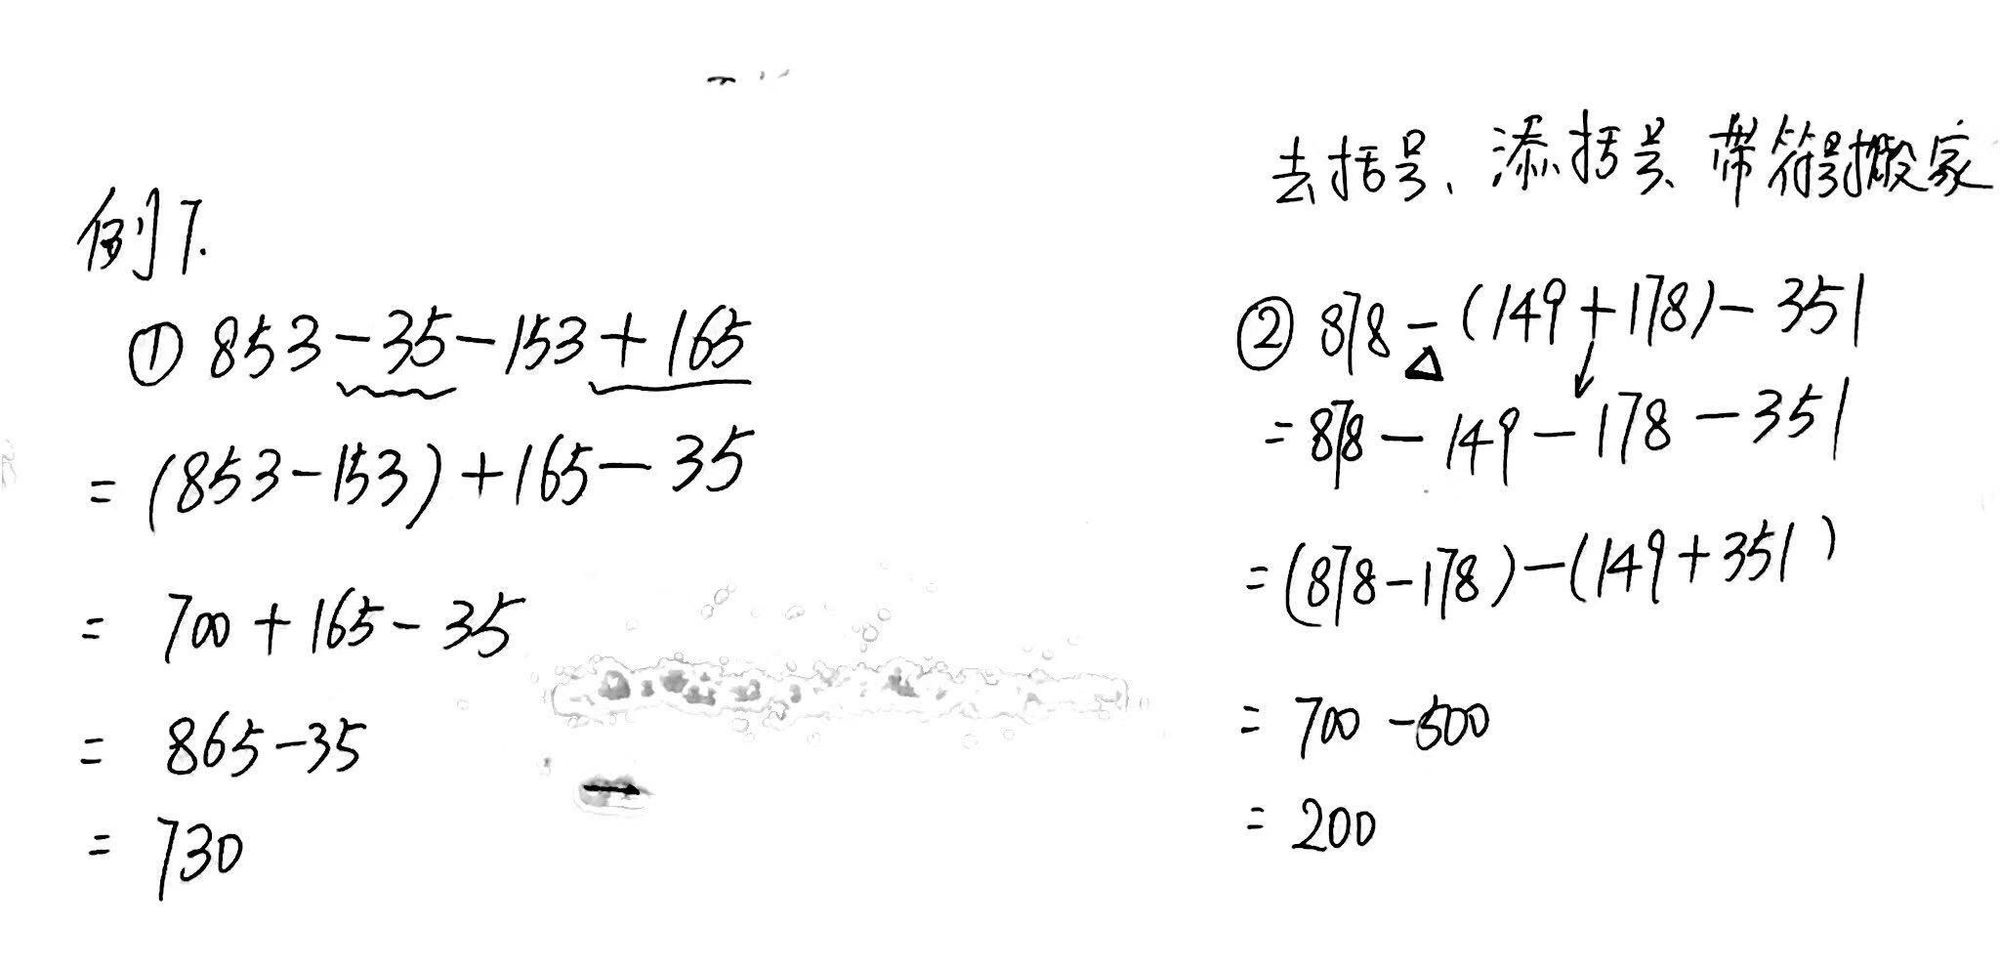 例7.
① 853-35-153+165
=(853-153)+165-35
= 700+165-35
= 865-35
= 730
去括号、添括号、带符号搬家
② 878-(149+178)-351
=878-149-178-351
=(878-178)-(149+351)
= 700-500
= 200